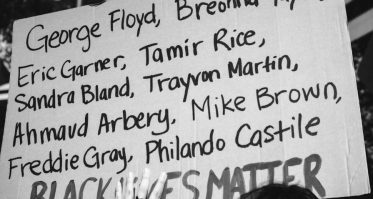 George Floyd, Breonna
Eric Garner, Tamir Rice,
Sandra Bland, Trayvon Martin,
Ahmaud Arbery, Mike Brown,
Freddie Gray, Philando Castile
BLACK LIVES MATTER